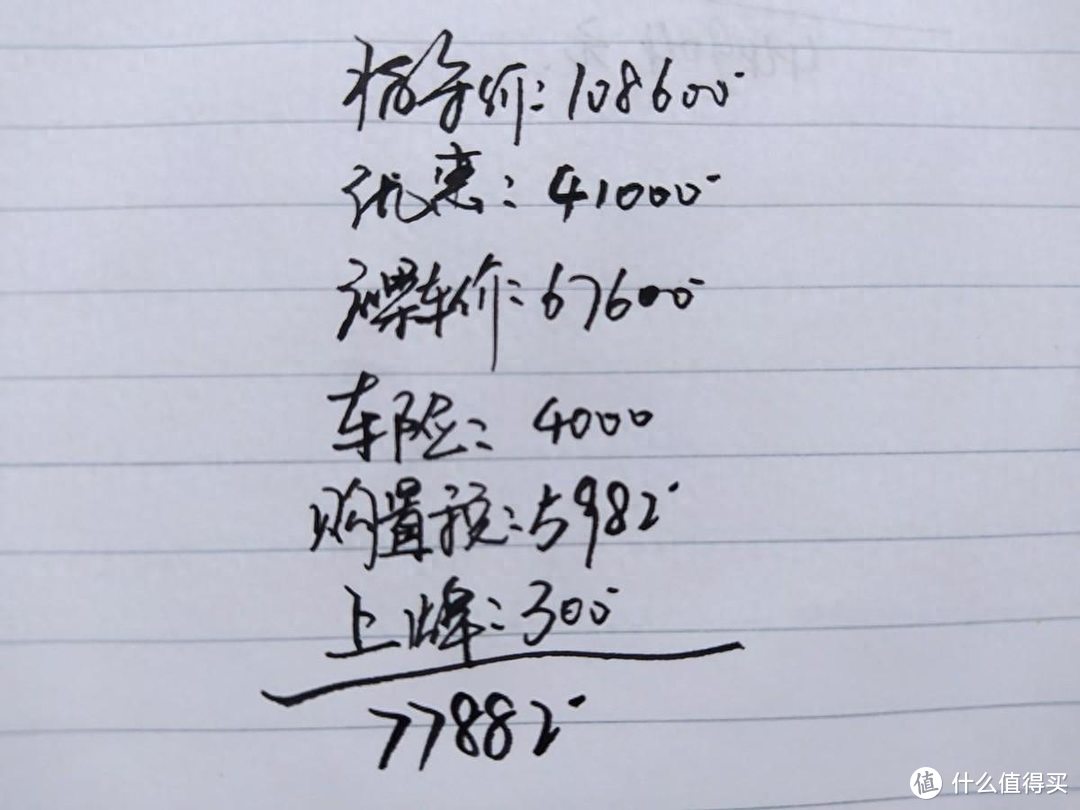 指导价:108600
优惠:41000
裸车价:67600
车险:4000
购置税:5982
上牌:300
77882
值 什么值得买